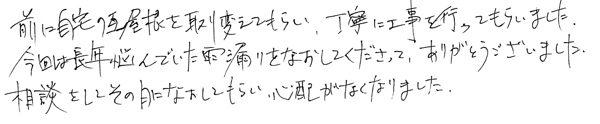 前に自宅の瓦屋根を取り変えてもらい、丁寧に工事を行ってもらいました.
今回は長年悩んでいた雨漏りをなおしてくださって、ありがとうございました.
相談をしてその日になおしてもらい、心配がなくなりました.